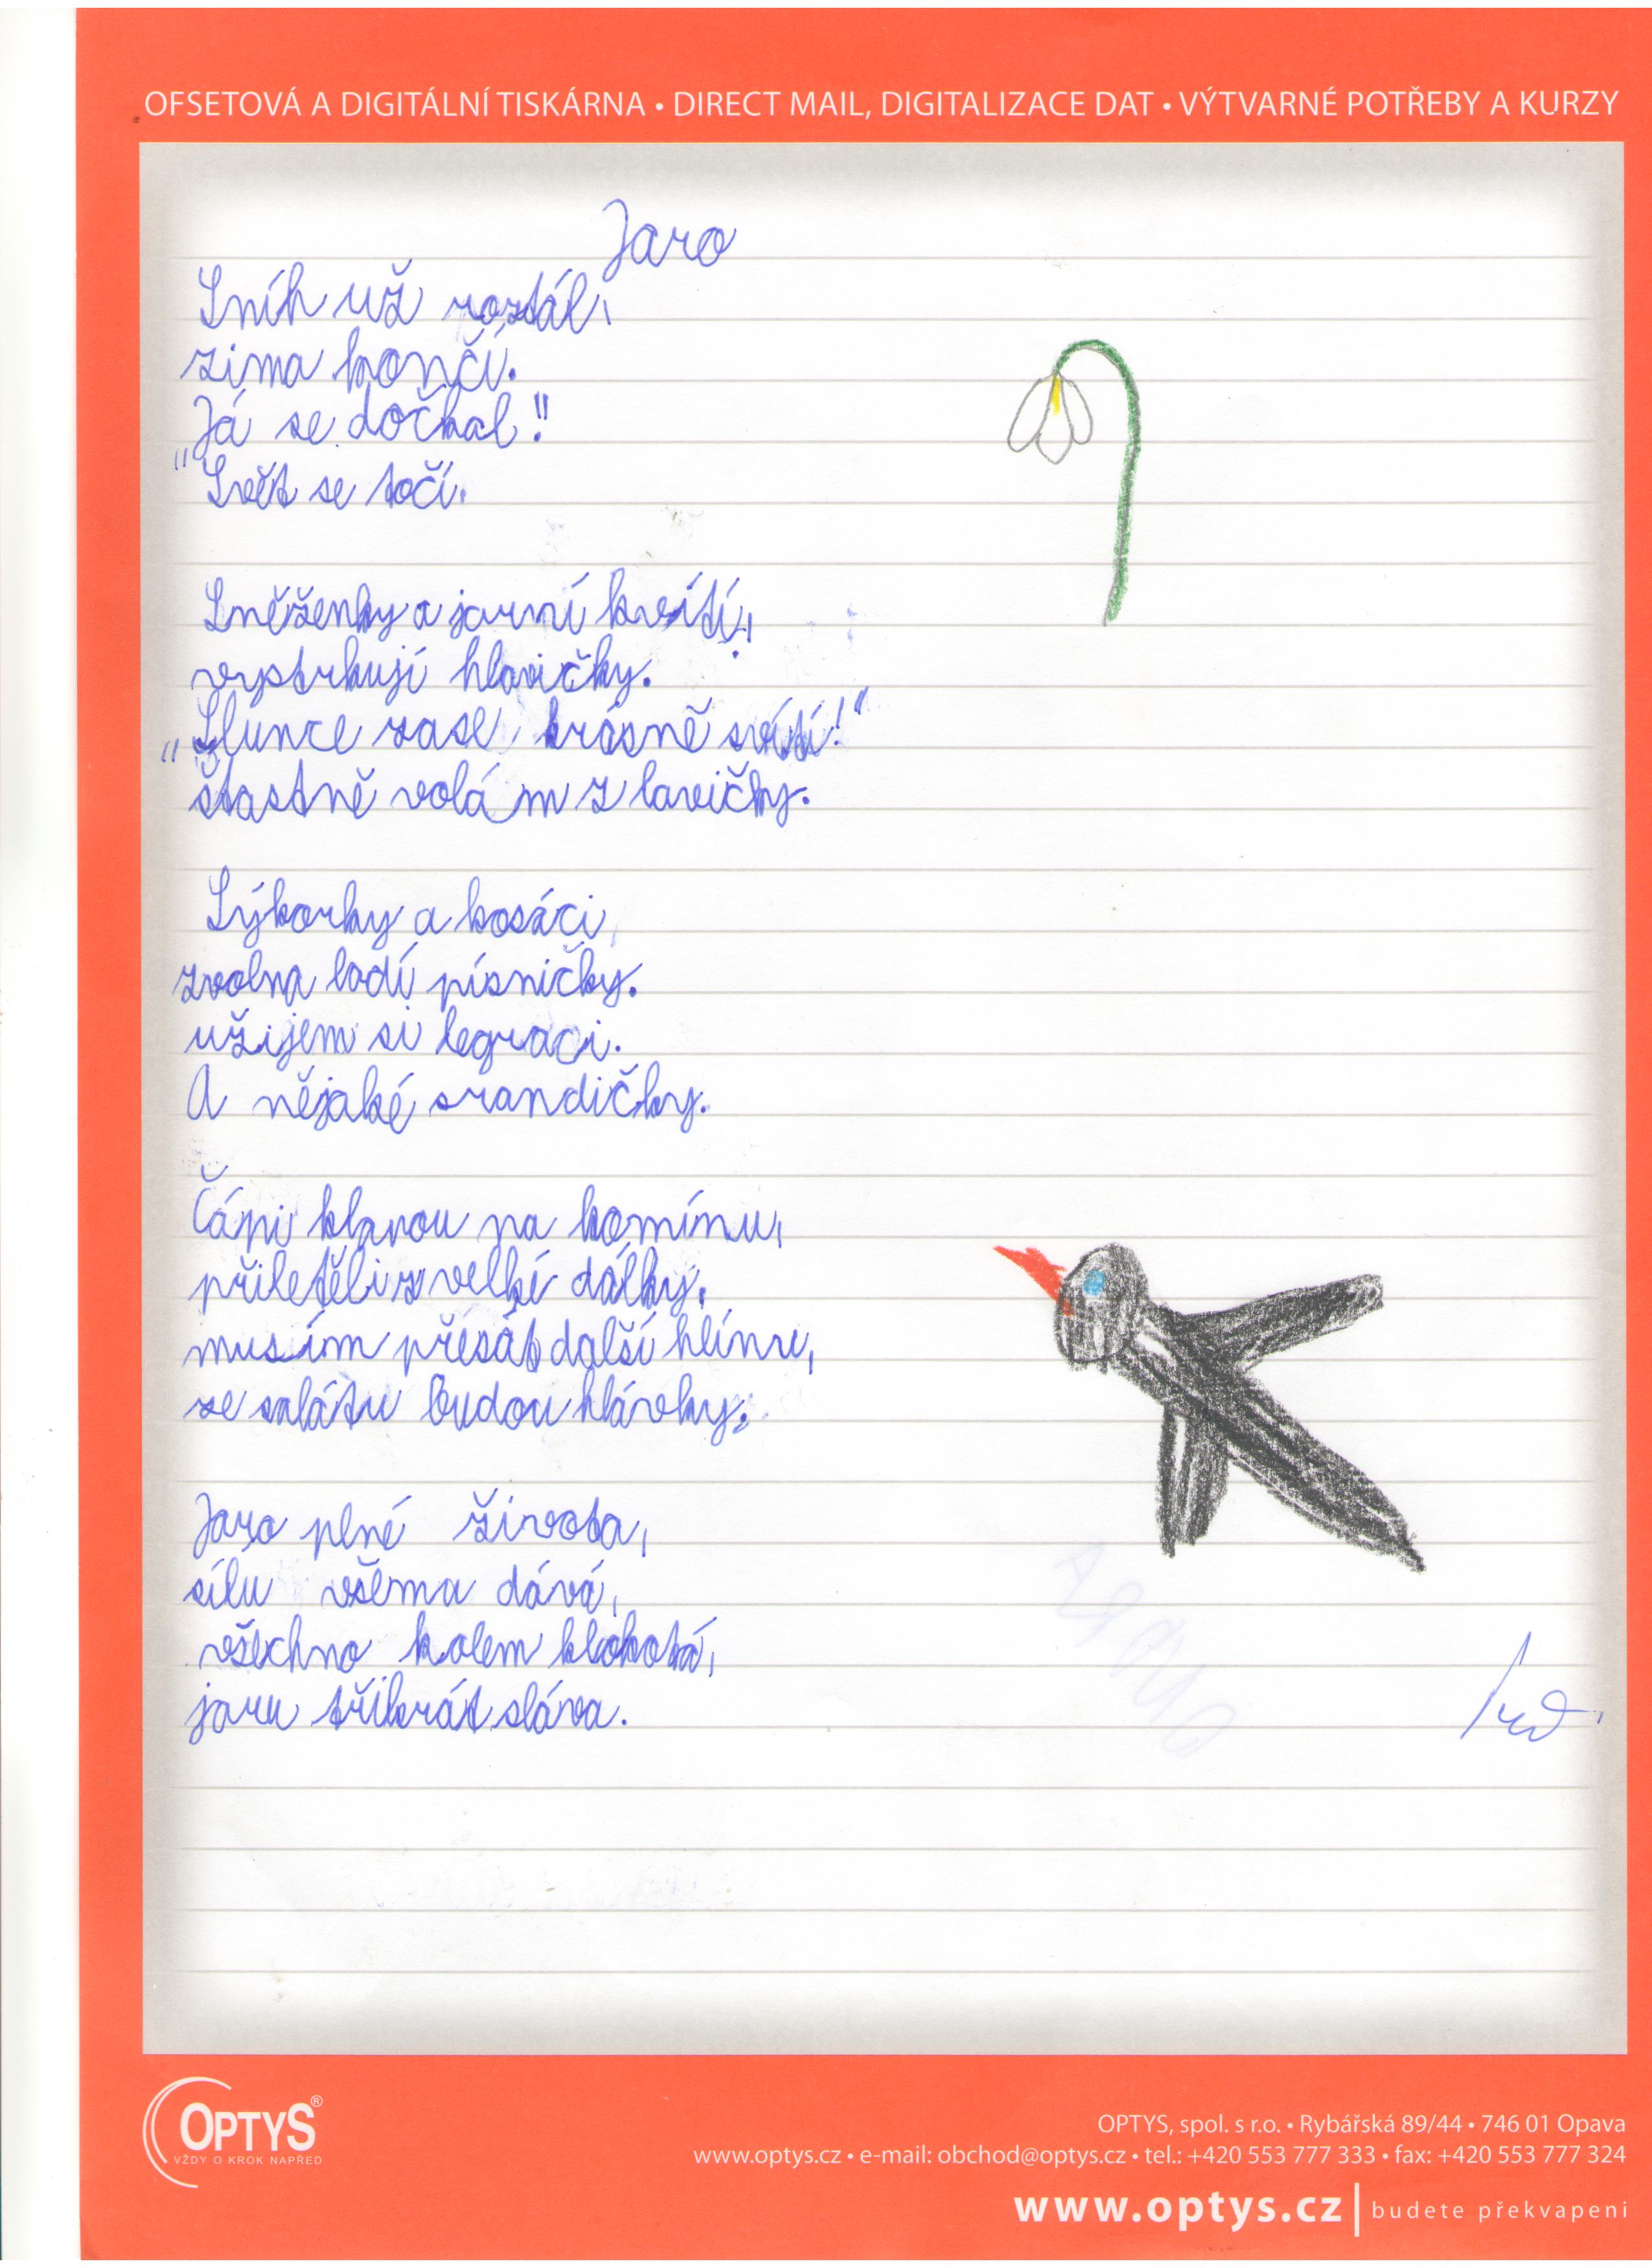 OFSETOVÁ A DIGITÁLNÍ TISKÁRNA • DIRECT MAIL, DIGITALIZACE DAT • VÝTVARNÉ POTŘEBY A KURZY
Jaro
Sníh už roztál,
zima končí.
„Já se dočkal!"
Svět se točí.
Sněženky a jarní kvítí,
vystrkují hlavičky.
„Slunce zase krásně svítí!“
štastně volám z lavičky.
Sýkorky a kosáci,
zvolna ladí písničky.
užijem si legraci.
A nějaké srandičky.
Čápi klapou na komínu,
přiletěli z velké dálky,
musím přesát další hlínu,
ze salátu budou hlávky.
Jaro plné života,
sílu všema dává,
všechno kolem klokotá,
jaru třikrát sláva.
OPTYS®
VŽDY O KROK NAPŘED
OPTYS, spol. s r.o. • Rybářská 89/44 • 746 01 Opava
www.optys.cz • e-mail: obchod@optys.cz • tel.: +420 553 777 333 • fax: +420 553 777 324
www.optys.cz | budete překvapeni